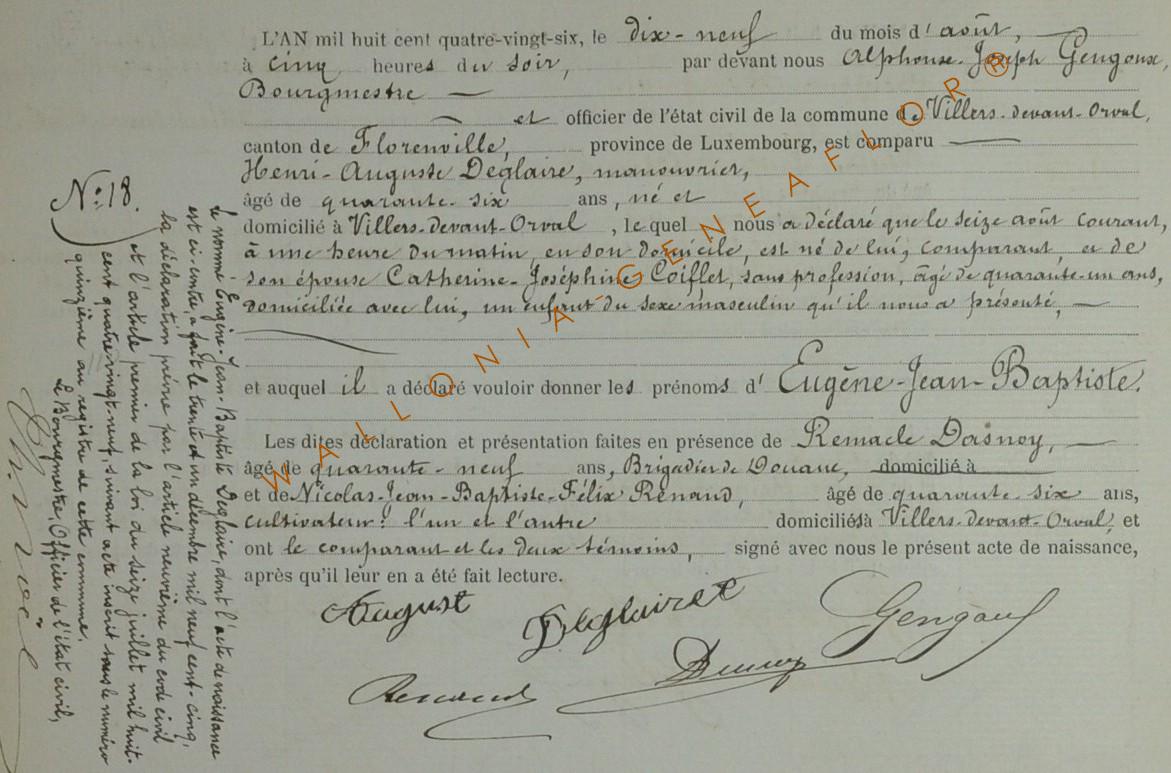 L'AN mil huit cent quatre-vingt-six, le dix-neuf du mois d'août,
à cinq heures du soir, par devant nous Alphonse-Joseph Gengoux,
Bourgmestre
et officier de l'état civil de la commune de Villers-devant-Orval,
canton de Florenville, province de Luxembourg, est comparu
Henri-Auguste Deglaire, manouvrier,
âgé de quarante-six ans, né et
domicilié à Villers-devant-Orval, le quel nous a déclaré que le seize août courant,
à une heure du matin, en son domicile, est né de lui, comparant, et de
son épouse Catherine-Joséphine Coiffet, sans profession, âgé de quarante-un ans,
domiciliée avec lui, un enfant du sexe masculin qu'il nous a présenté,
et auquel il a déclaré vouloir donner les prénoms d'Eugène-Jean-Baptiste.
Les dites déclaration et présentation faites en présence de Remacle Dasnoy,
âgé de quarante-neuf ans, Brigadier de Douane, domicilié à
et de Nicolas-Jean-Baptiste-Félix Renaud, âgé de quarante-six ans,
cultivateur: l'un et l'autre domiciliés à Villers-devant-Orval, et
ont le comparant et les deux témoins, signé avec nous le présent acte de naissance,
après qu'il leur en a été fait lecture.
August Deglairet Gengoux
Renaud Dasnoy
No: 18.
Le nommé Eugène-Jean-Baptiste Deglaire, dont l'acte de naissance
est ci-contre, a fait le trente et un décembre mil neuf cent-cinq,
la déclaration prévue par l'article neuvième du code civil
et l'article premier de la loi du seize juillet mil huit-
cent quatre-vingt-neuf, suivant acte inscrit sous le numéro
quinzième au registre de cette commune.
Le Bourgmestre, Officier de l'état civil,
WALLONIA-GENEAFLOR®